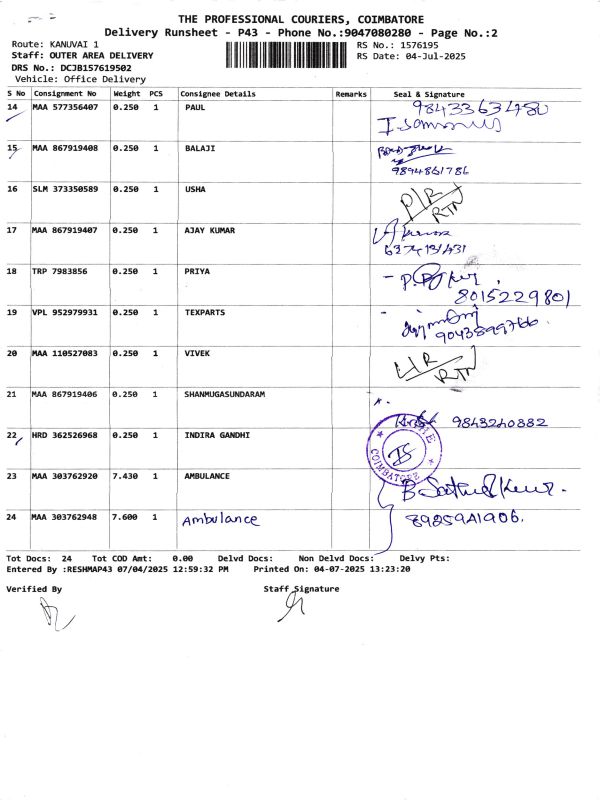 THE PROFESSIONAL COURIERS, COIMBATORE
Delivery Runsheet - P43 - Phone No.:9047080280 - Page No.:2
Route: KANUVAI 1
RS No.: 1576195
Staff: OUTER AREA DELIVERY
RS Date: 04-Jul-2025
DRS No.: DCJB157619502
Vehicle: Office Delivery
S No Consignment No Weight PCS Consignee Details Remarks Seal & Signature
14 MAA 577356407 0.250 1 PAUL
15 MAA 867919408 0.250 1 BALAJI
9894861786
16 SLM 373350589 0.250 1 USHA
RTN
17 MAA 867919407 0.250 1 AJAY KUMAR
18 TRP 7983856 0.250 1 PRIYA
8015229801
19 VPL 952979931 0.250 1 TEXPARTS
9043899766
20 MAA 110527083 0.250 1 VIVEK
RTN
21 MAA 867919406 0.250 1 SHANMUGASUNDARAM
9843240882
22 HRD 362526968 0.250 1 INDIRA GANDHI
COIMBATORE
23 MAA 303762920 7.430 1 AMBULANCE
24 MAA 303762948 7.600 1 Ambulance
Tot Docs: 24 Tot COD Amt: 0.00 Delvd Docs: Non Delvd Docs: Delvy Pts:
Entered By :RESHMAP43 07/04/2025 12:59:32 PM Printed On: 04-07-2025 13:23:20
Verified By Staff Signature